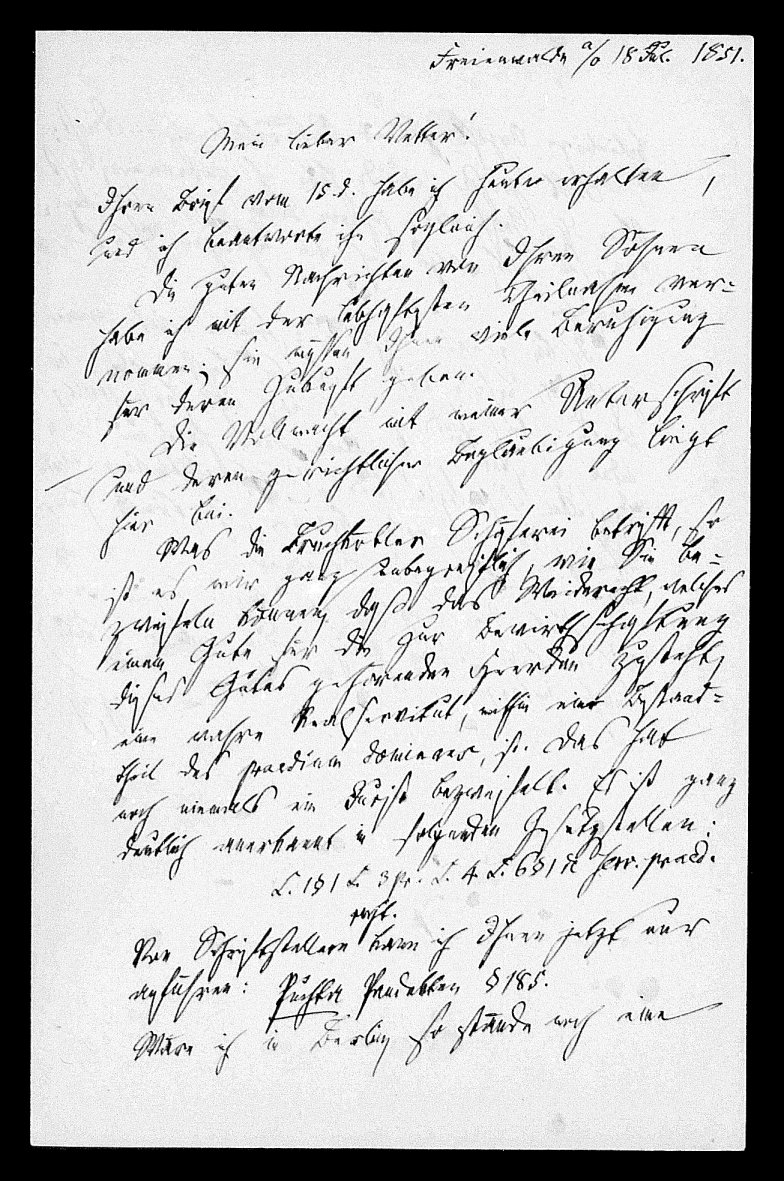 Freienwalde a/O 18 Jul. 1851.
Mein lieber Vetter!
Ihren Brief vom 15 d. habe ich heute erhalten,
und ich beantworte ihn sogleich.
Die guten Nachrichten von Ihren Söhnen
habe ich mit der lebhaftesten Theilnahme ver-
nommen; sie müssen Ihnen viele Beruhigung
für deren Zukunft geben.
Die Vollmacht mit meiner Unterschrift
und deren gerichtlicher Beglaubigung liegt
hier bei.
Was die Bruchköbler Schäferei betrifft, so
ist es mir ganz unbegreiflich, wie Sie be-
zweifeln können, daß das Weiderecht, welches
einem Gute für die zur Bewirthschaftung
dieses Gutes gehörenden Heerden zusteht,
eine wahre Realservitut, mithin einen Bestand-
theil des praedium dominans, ist. Das hat
noch niemals ein Jurist bezweifelt. Es ist ganz
deutlich anerkannt in folgenden Gesetzstellen:
L. 1 § 1 L. 3 pr. L. 4 L. 6 § 1 de serv. praed.
rust.
Von Schriftstellern kann ich Ihnen jetzt nur
anführen: Puchta Pandekten § 185.
Wäre ich in Berlin, so stände noch eine